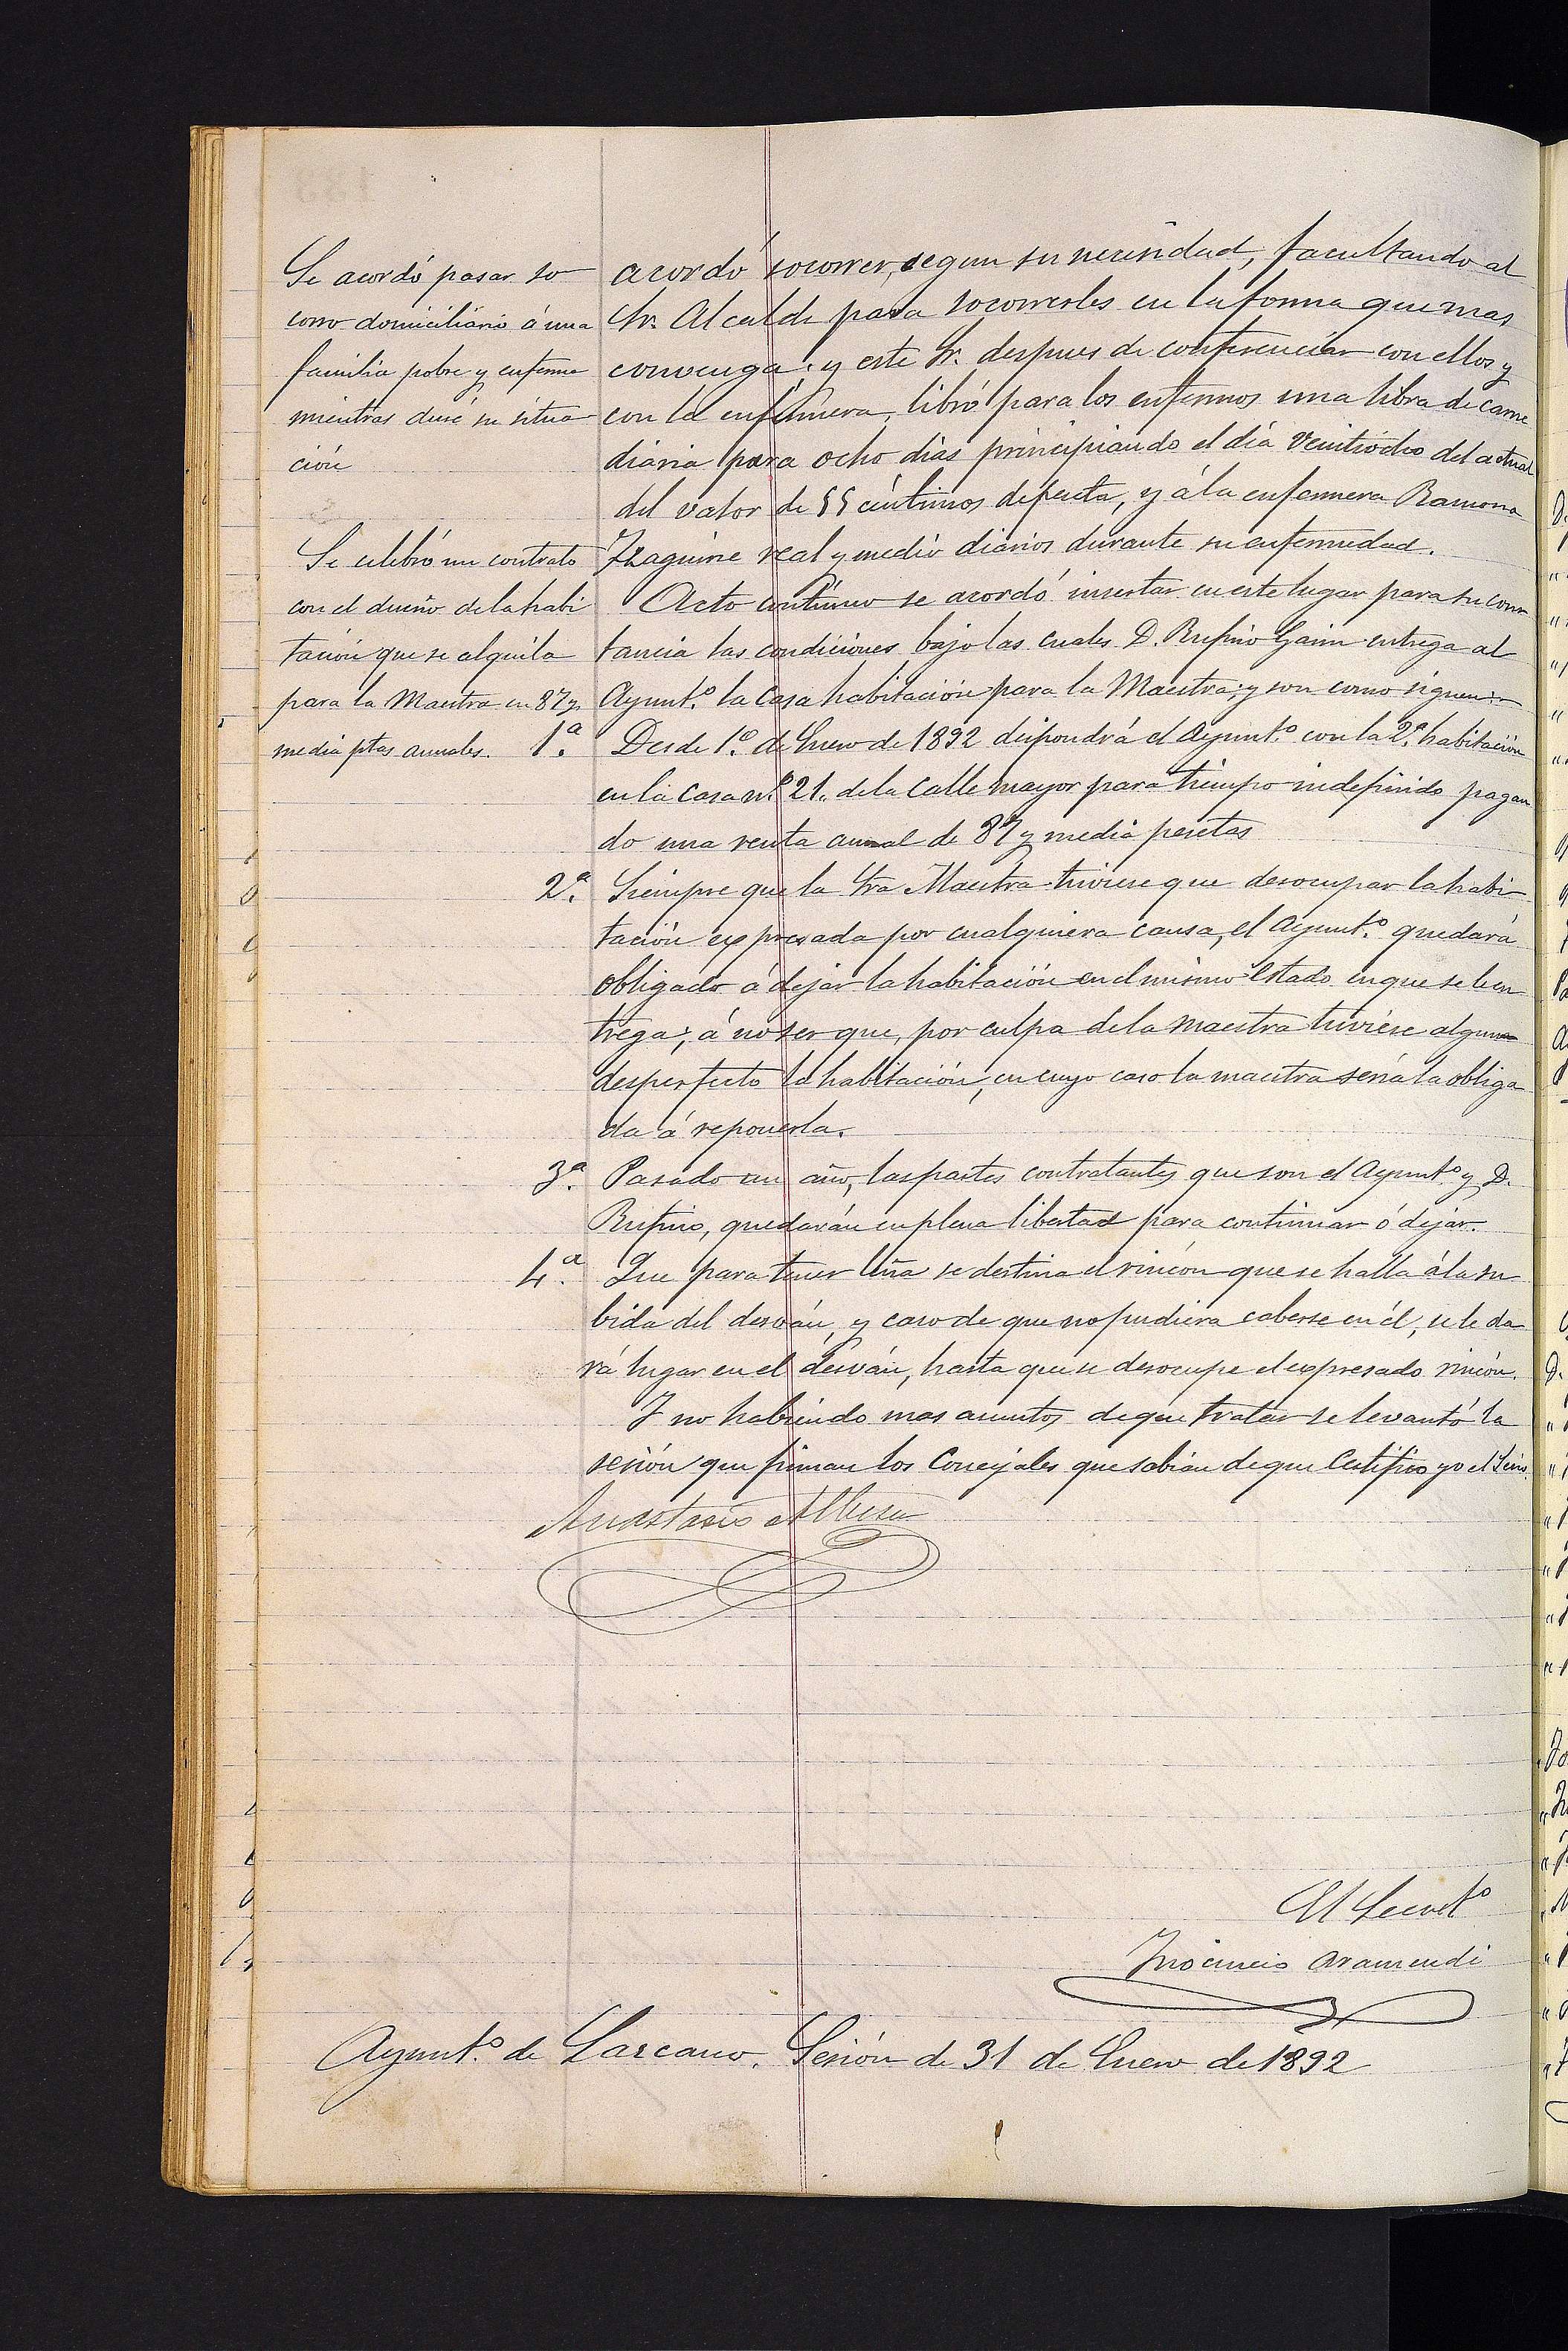 Se acordó pasar so
corro domiciliario á una
familia pobre y enferma
mientras dure su situa
ción
Se celebró un contrato
con el dueño de la habi
tación que se alquila
para la Maestra en 87 y
media ptas anuales.
acordó socorrer, segun su necesidad, facultando al
Sr. Alcalde para socorrerles en la forma que mas
convenga; y este Sr. despues de conferenciar con ellos y
con la enfermera, libró para los enfermos una libra de carne
diaria para ocho dias principiando el día veintiocho del actual
del valor de 55 céntimos de peseta, y á la enfermera Ramona
Izaguirre real y medio diarios durante su enfermedad.
Acto contínuo se acordó insertar en este lugar para su cons
tancia las condiciones bajo las cuales D. Rufino entrega al
Ayunt.º la Casa habitación para la Maestra; y son como siguen:
1.ª Desde 1.º de Enero de 1892 dispondrá el Ayunt.º con la 2.ª habitación
en la casa n.º 21. de la Calle mayor para tiempo indefinido pagan
do una renta anual de 87 y media pesetas
2.ª Siempre que la Sra Maestra tuviese que desocupar la habi
tación expresada por cualquiera causa, el Ayunt.º quedará
obligado á dejar la habitación en el mismo estado en que se le en
trega; á no ser que, por culpa de la maestra tuviese algun
desperfecto la habitación, en cuyo caso la maestra sería la obliga
da á reponerla.
3.ª Pasado un año, las partes contratantes que son el Ayunt.º y D.
Rufino, quedarán en plena libertad para continuar ó dejar.
4.ª Que para tener leña se destina el rincón que se halla á la su
bida del desván, y caso de que no pudiera caberse en él, se le da
rá lugar en el desván, hasta que se desocupe el expresado rincón.
Y no habiendo mas asuntos de que tratar se levantó la
sesión que firman los Concejales que sabían de que Certifico yo el Srio
Anastasio Albisu
El Secret.º
Inocencio Aramendi
Ayunt.º de Lazcano. Sesión de 31 de Enero de 1892